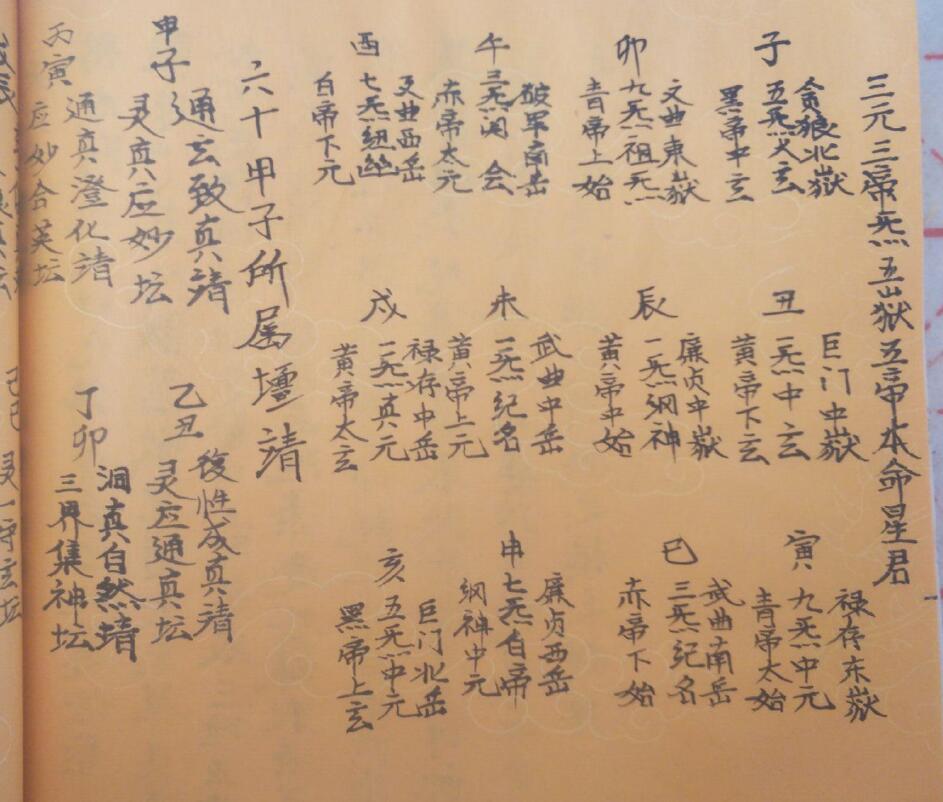 三元三帝炁五嶽五帝本命星君
子
贪狼北嶽
五炁义玄
黑帝中玄
丑
巨门中嶽
一炁中玄
黄帝下玄
寅
禄存东嶽
九炁中元
青帝太始
卯
文曲東嶽
九炁祖炁
青帝上始
辰
廉贞中嶽
一炁纲神
黄帝中始
巳
武曲南岳
三炁纪名
赤帝下始
午
破军南岳
三炁闵会
赤帝太元
未
武曲中岳
一炁纪名
黄帝上元
申
廉贞西岳
七炁白帝
纲神中元
酉
文曲西岳
七炁纽幽
白帝下元
戌
禄存中岳
一炁真元
黄帝太玄
亥
巨门北岳
五炁中元
黑帝上玄
六十甲子所属壇靖
甲子
通玄致真靖
灵真应妙坛
乙丑
復性成真靖
灵应通真坛
丙寅
通真澄化靖
应妙合英坛
丁卯
洞真自然靖
三界集神坛
戊辰
己巳
灵一守玄坛